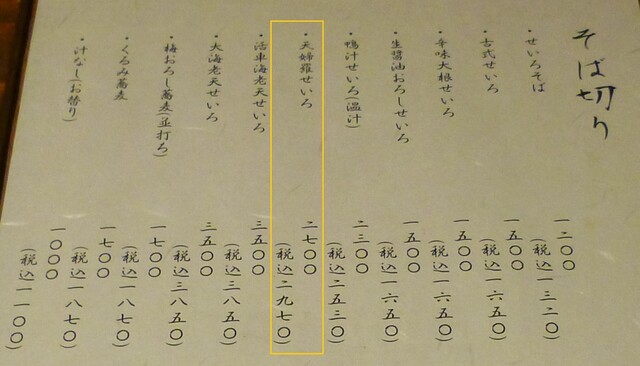 そば切り
・せいろそば
一二〇〇
(税込一三二〇)
・古式せいろ
一五〇〇
(税込一六五〇)
・辛味大根せいろ
一五〇〇
(税込一六五〇)
・生醤油おろしせいろ
一五〇〇
(税込一六五〇)
・鴨汁せいろ(温汁)
二三〇〇
(税込二五三〇)
・天婦羅せいろ
二七〇〇
(税込二九七〇)
・活車海老天せいろ
三五〇〇
(税込三八五〇)
・大海老天せいろ
三五〇〇
(税込三八五〇)
・梅おろし蕎麦(並打ち)
一七〇〇
(税込一八七〇)
・くるみ蕎麦
一七〇〇
(税込一八七〇)
・汁なし(お替り)
一〇〇〇
(税込一一〇〇)